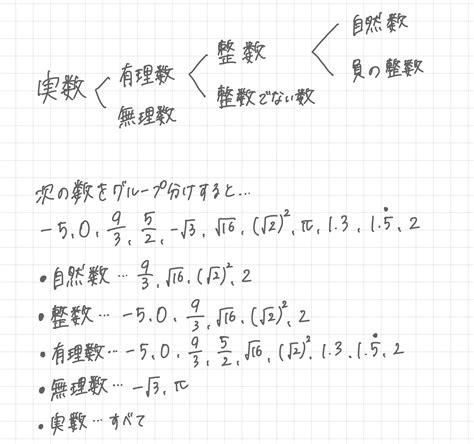 実数 < 有理数 < 整数 < 自然数
負の整数
無理数 整数でない数
次の数をグループ分けすると…
-5, 0, 9/3, 5/2, -√3, √16, (√2)², π, 1.3, 1.5̇, 2
• 自然数 … 9/3, √16, (√2)², 2
• 整数 … -5, 0, 9/3, √16, (√2)², 2
• 有理数 … -5, 0, 9/3, 5/2, √16, (√2)², 1.3, 1.5̇, 2
• 無理数 … -√3, π
• 実数 … すべて